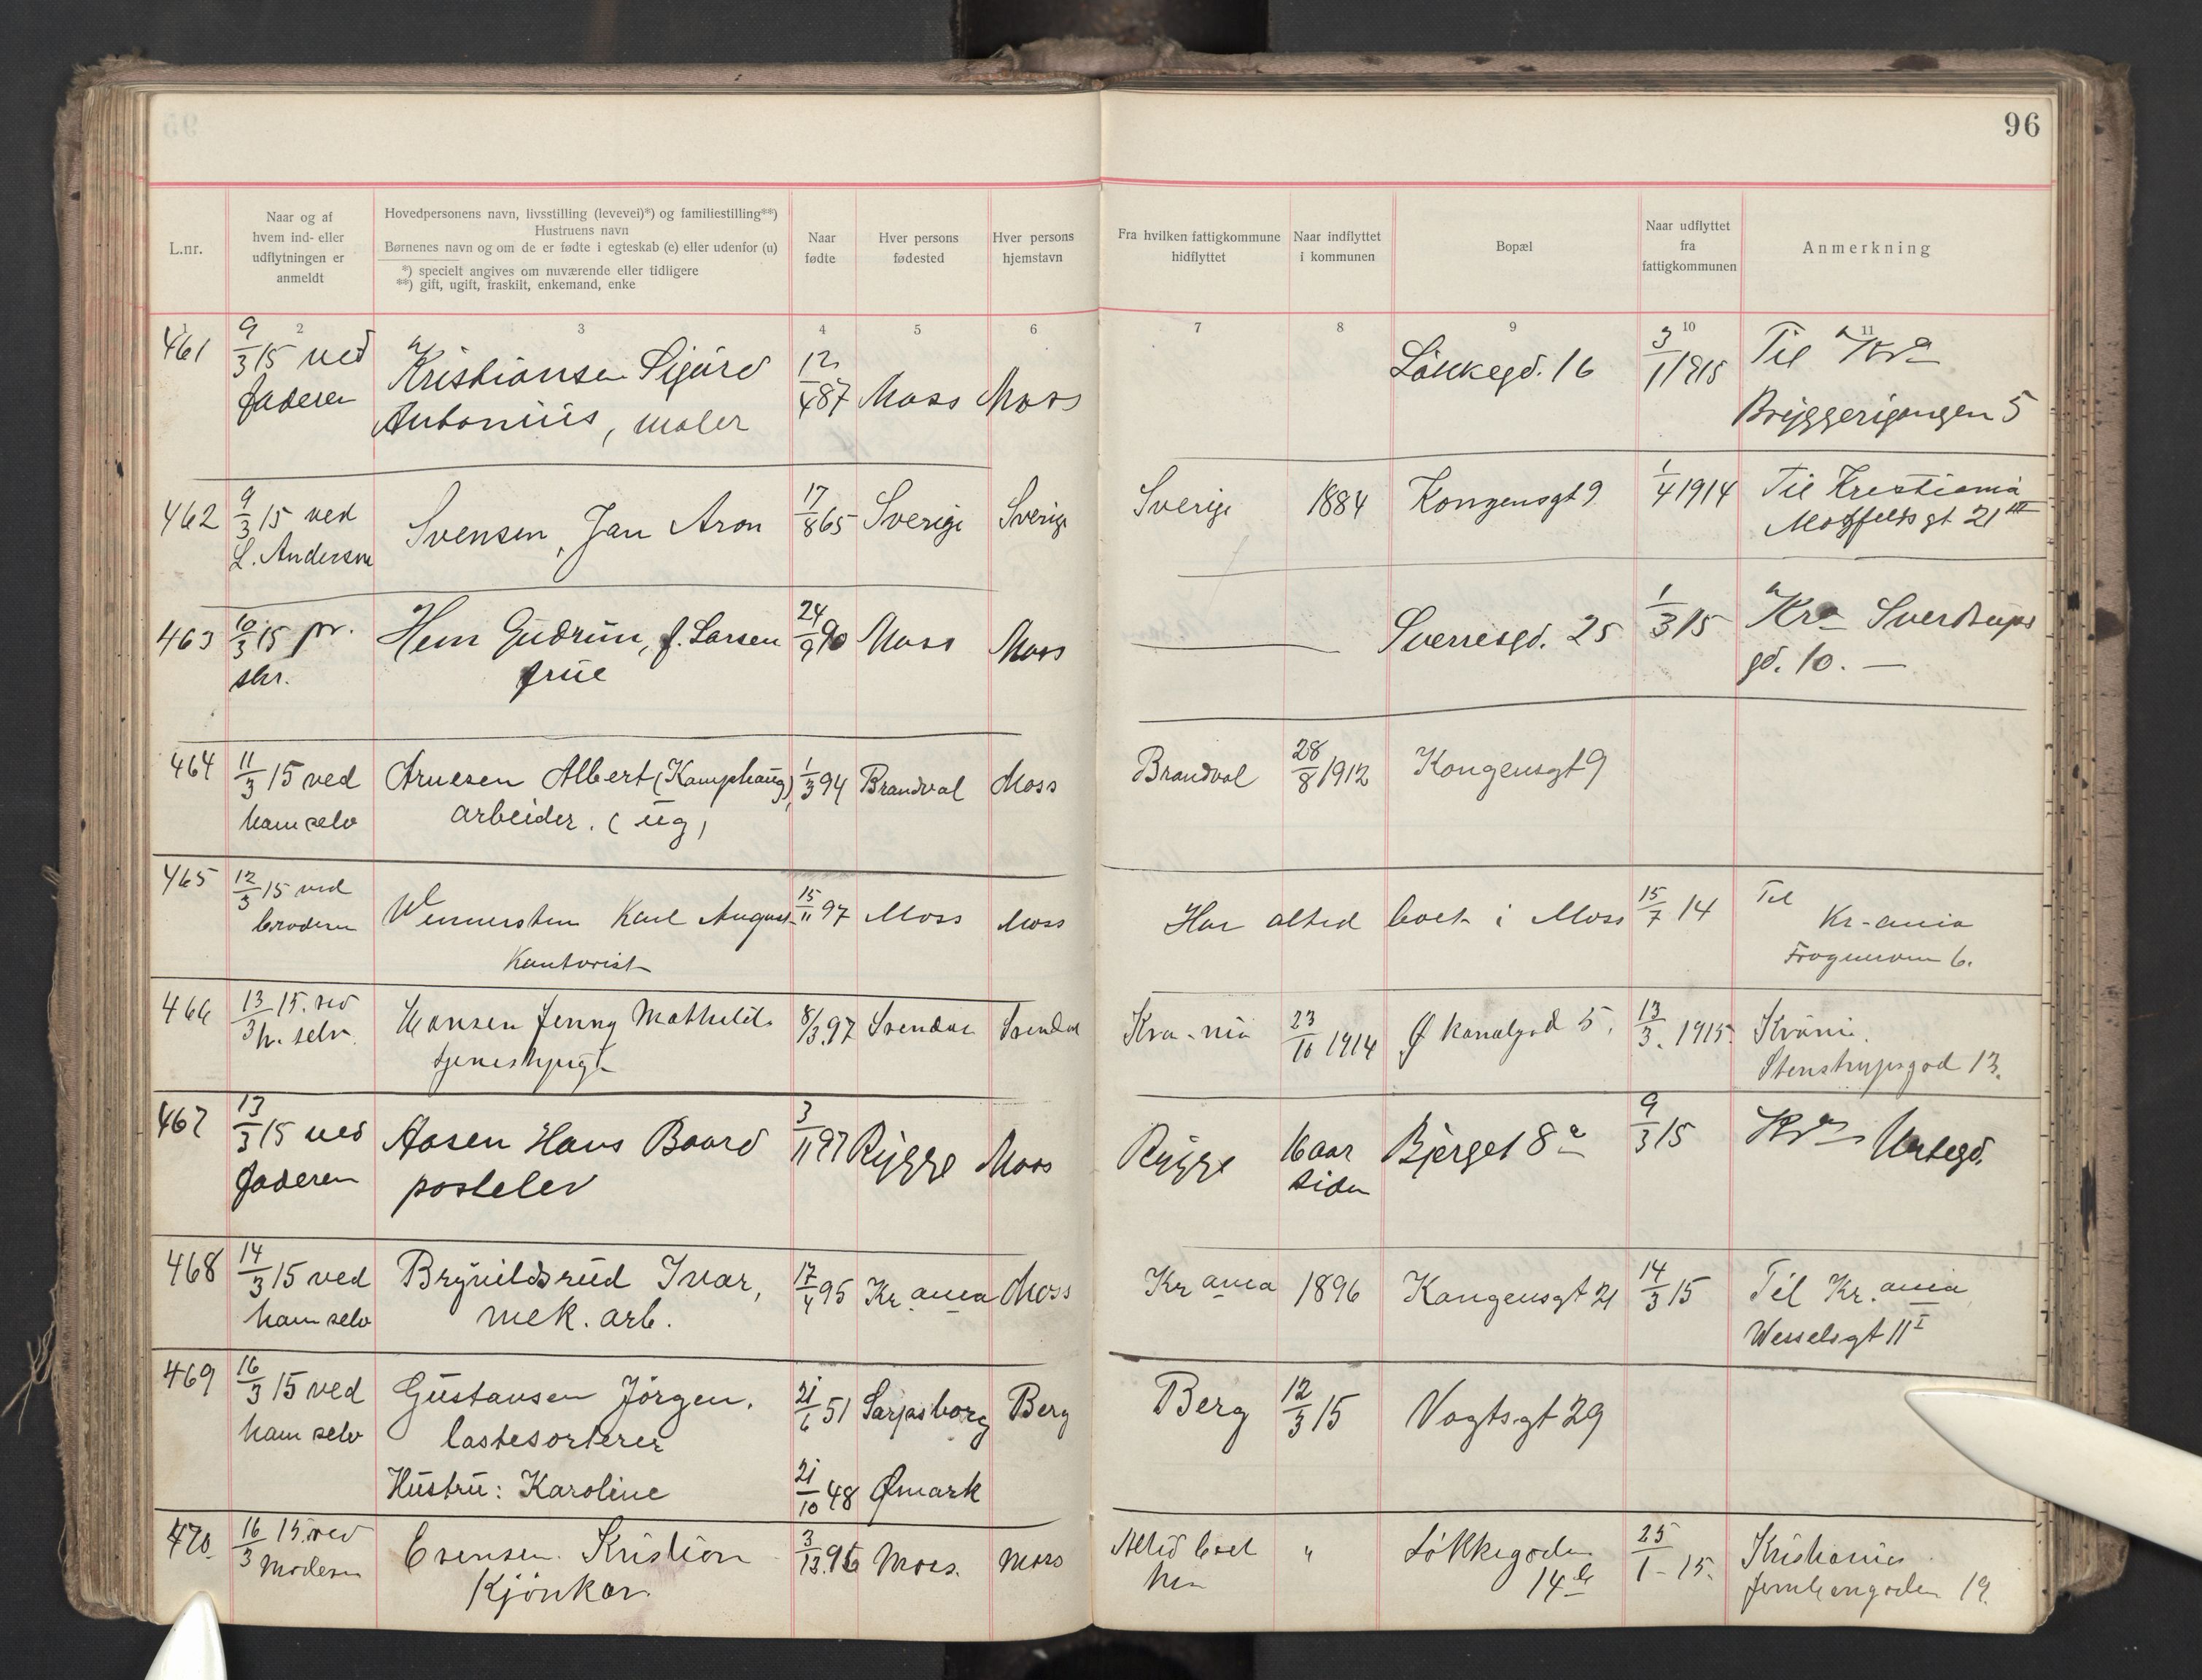 96
L.nr.
Naar og af
hvem ind- eller
udflytningen er
anmeldt
Hovedpersonens navn, livsstilling (levevei)*) og familiestilling**)
Hustruens navn
Børnenes navn og om de er fødte i egteskab (e) eller udenfor (u)
*) specielt angives om nuværende eller tidligere
**) gift, ugift, fraskilt, enkemand, enke
Naar
fødte
Hver persons
fødested
Hver persons
hjemstavn
Fra hvilken fattigkommune
hidflyttet
Naar indflyttet
i kommunen
Bopæl
Naar udflyttet
fra
fattigkommunen
Anmerkning
1 2 3 4 5 6 7 8 9 10 11
461 9/3 15 ved Kristiansen Sigurd 12/4 87 Moss Moss Løkkegd. 16 3/1 1915 Til Kra
faderen Antonius, maler Bryggerigangen 5
462 9/3 15 ved Svensen, Jan Aron 17/8 65 Sverige Sverige Sverige 1884 Kongensgt 9 1/4 1914 Til Kristiania
L. Andersen gt 21 III
463 10/3 15 pr. Hem Gudrun, f. Larsen 24/9 90 Moss Moss Sverresgd. 25 1/3 15 Kra Sverdrups
skr. frue gd. 10. —
464 11/3 15 ved Arnesen Albert (Kamphaug), 1/3 94 Brandval Moss Brandval 28/8 1912 Kongensgt 9
ham selv arbeider. (ug)
465 12/3 15 ved Wennersten Karl August 15/11 97 Moss Moss Har altid boet i Moss 15/7 14 Til
broderen Kr-ania
Kontorist Frognerven 6.
466 13/3 15. ved Hansen Jenny Mathilde 8/3 97 Kra-nia 23/10 1914 Ø Kanalgad 5. 13/3. 1915. Krania.
h. selv. tjenestepige Stenstrupsgad 13.
467 13/3 15 ved Aasen Hans Baard 3/11 97 Rygge Moss Rygge 16 aar Bjerget 8 a 9/3 15 Kra Urtegd.
faderen postelev siden
468 14/3 15 ved Brynildsrud Ivar, 17/4 95 Kr.ania Moss Kr ania 1896 Kongensgt 21 14/3 15 Til Kr.ania
ham selv mek. arb. Wesselsgt 11 I
469 16/3 15 ved Gustavsen Jörgen. 21/6 51 Sarpsborg Berg Berg 12/3 15 Vogtsgt 29
ham selv lastesorterer
Hustru: Karoline 21/10 48 Ømark
470. 16/3 15. ved Evensen. Kristian 3/12. 95 Moss. Moss Altid boet " Løkkegaden 25/1 - 15. Kristiania
moderen Kjørekar. her 14 b Jernbangaden 19.